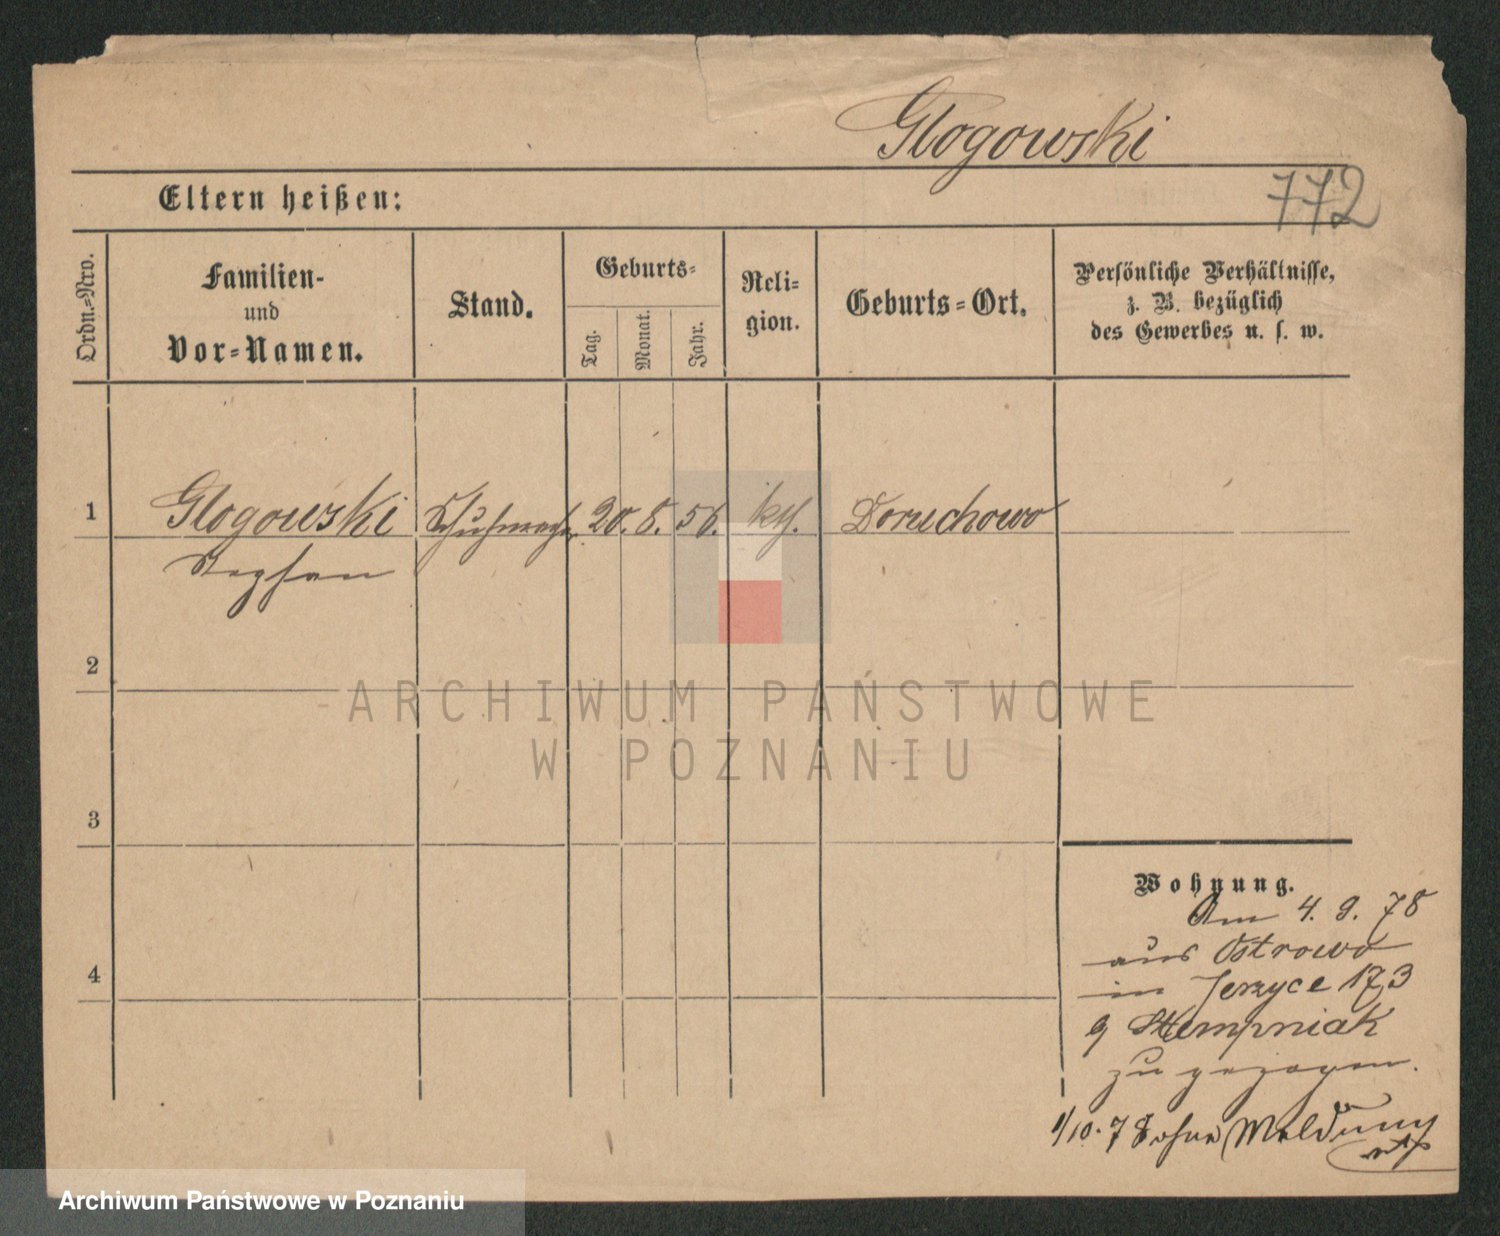 Glogowski
772
Eltern heißen:
Ordn.=Nro.
Familien-
und
Vor=Namen.
Stand.
Geburts=
Tag.
Monat.
Jahr.
Reli=
gion.
Geburts=Ort.
Persönliche Verhältnisse,
z. B. bezüglich
des Gewerbes u. s. w.
1
Glogowski Schuhmacher 20. 8. 56. kth. Doruchowo
Stephan
2
ARCHIWUM PAŃSTWOWE
W POZNANIU
3
Wohnung.
Am 4. 9. 78
aus Ostrowo
4
in Jerzyce 173
Stempniak
zu gezogen.
1/10. 78 ohne Meldung
Archiwum Państwowe w Poznaniu